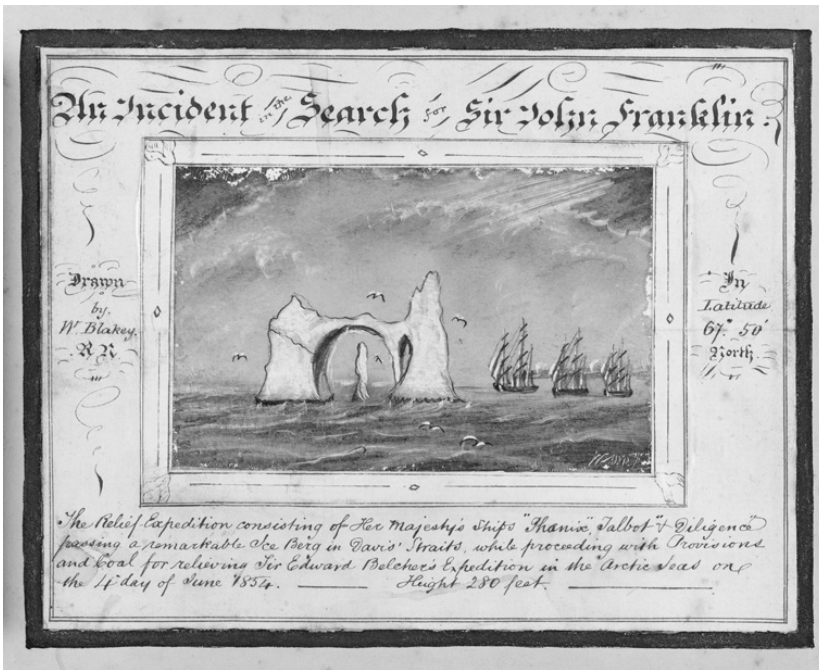 An Incident in the Search for Sir John Franklin.
Drawn
by.
W. Blakey.
R N
In
Latitude
67° 50'
North.
The Relief Expedition consisting of Her Majesty's Ships "Phœnix" "Talbot" & "Diligence"
passing a remarkable Ice Berg in Davis' Straits, while proceeding with Provisions
and Coal for relieving Sir Edward Belcher's Expedition in the Arctic Seas on
the 4th day of June 1854. Height 280 feet.